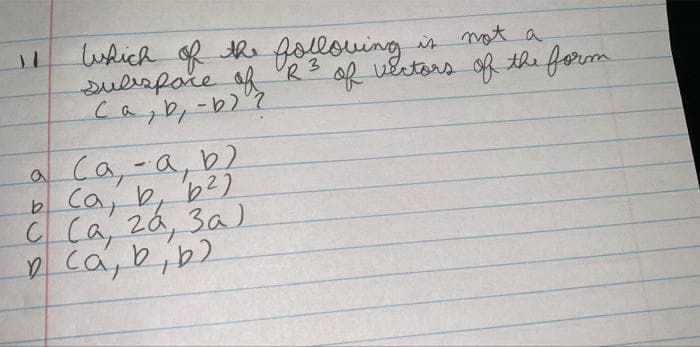 11 Which of the following is not a
subspace of R³ of vectors of the form
(a, b, -b)?
a (a, -a, b)
b (a, b, b²)
c (a, 2a, 3a)
D (a, b, b)